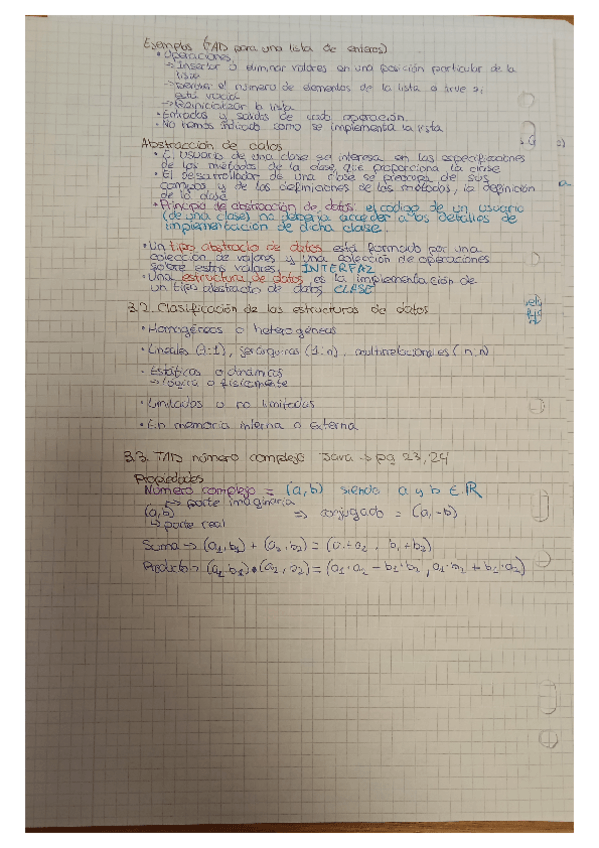 Ejemplos (TAD para una lista de enteros)
• Operaciones
→ Insertar o eliminar valores en una posición particular de la
lista
→ Devolver el número de elementos de la lista o true si
está vacía
→ Reinicializar la lista
• Entradas y salidas de cada operación
• No hemos indicado como se implementa la lista
Abstracción de datos
• El usuario de una clase se interesa en las especificaciones
de los métodos de la clase que proporciona la clase
• El desarrollador de una clase se preocupa de sus
campos y de las definiciones de los métodos, la definición
de la clase
• Principio de abstracción de datos: el código de un usuario
(de una clase) no debería acceder a los detalles de
implementación de dicha clase.
• Un tipo abstracto de datos está formado por una
colección de valores y una colección de operaciones
sobre estos valores. INTERFAZ
• Una estructura de datos es la implementación de
un tipo abstracto de datos CLASE
3.2. Clasificación de las estructuras de datos
• Homogéneas o heterogéneas
• Lineales (1:1), jerárquicas (1:n), multirrelacionales (n:n)
• Estáticas o dinámicas
→ lógica o físicamente
• Limitadas o no limitadas
• En memoria interna o externa
3.3. TAD número complejo Java → pg 23, 24
Propiedades
Número complejo = (a,b) siendo a y b ∈ ℝ
↱ parte imaginaria
(a,b) ⇒ conjugado = (a,-b)
↳ parte real
Suma → (a1, b1) + (a2, b2) = (a1+a2, b1+b2)
Producto → (a1, b1) • (a2, b2) = (a1·a2 - b1·b2, a1·b2 + b1·a2)